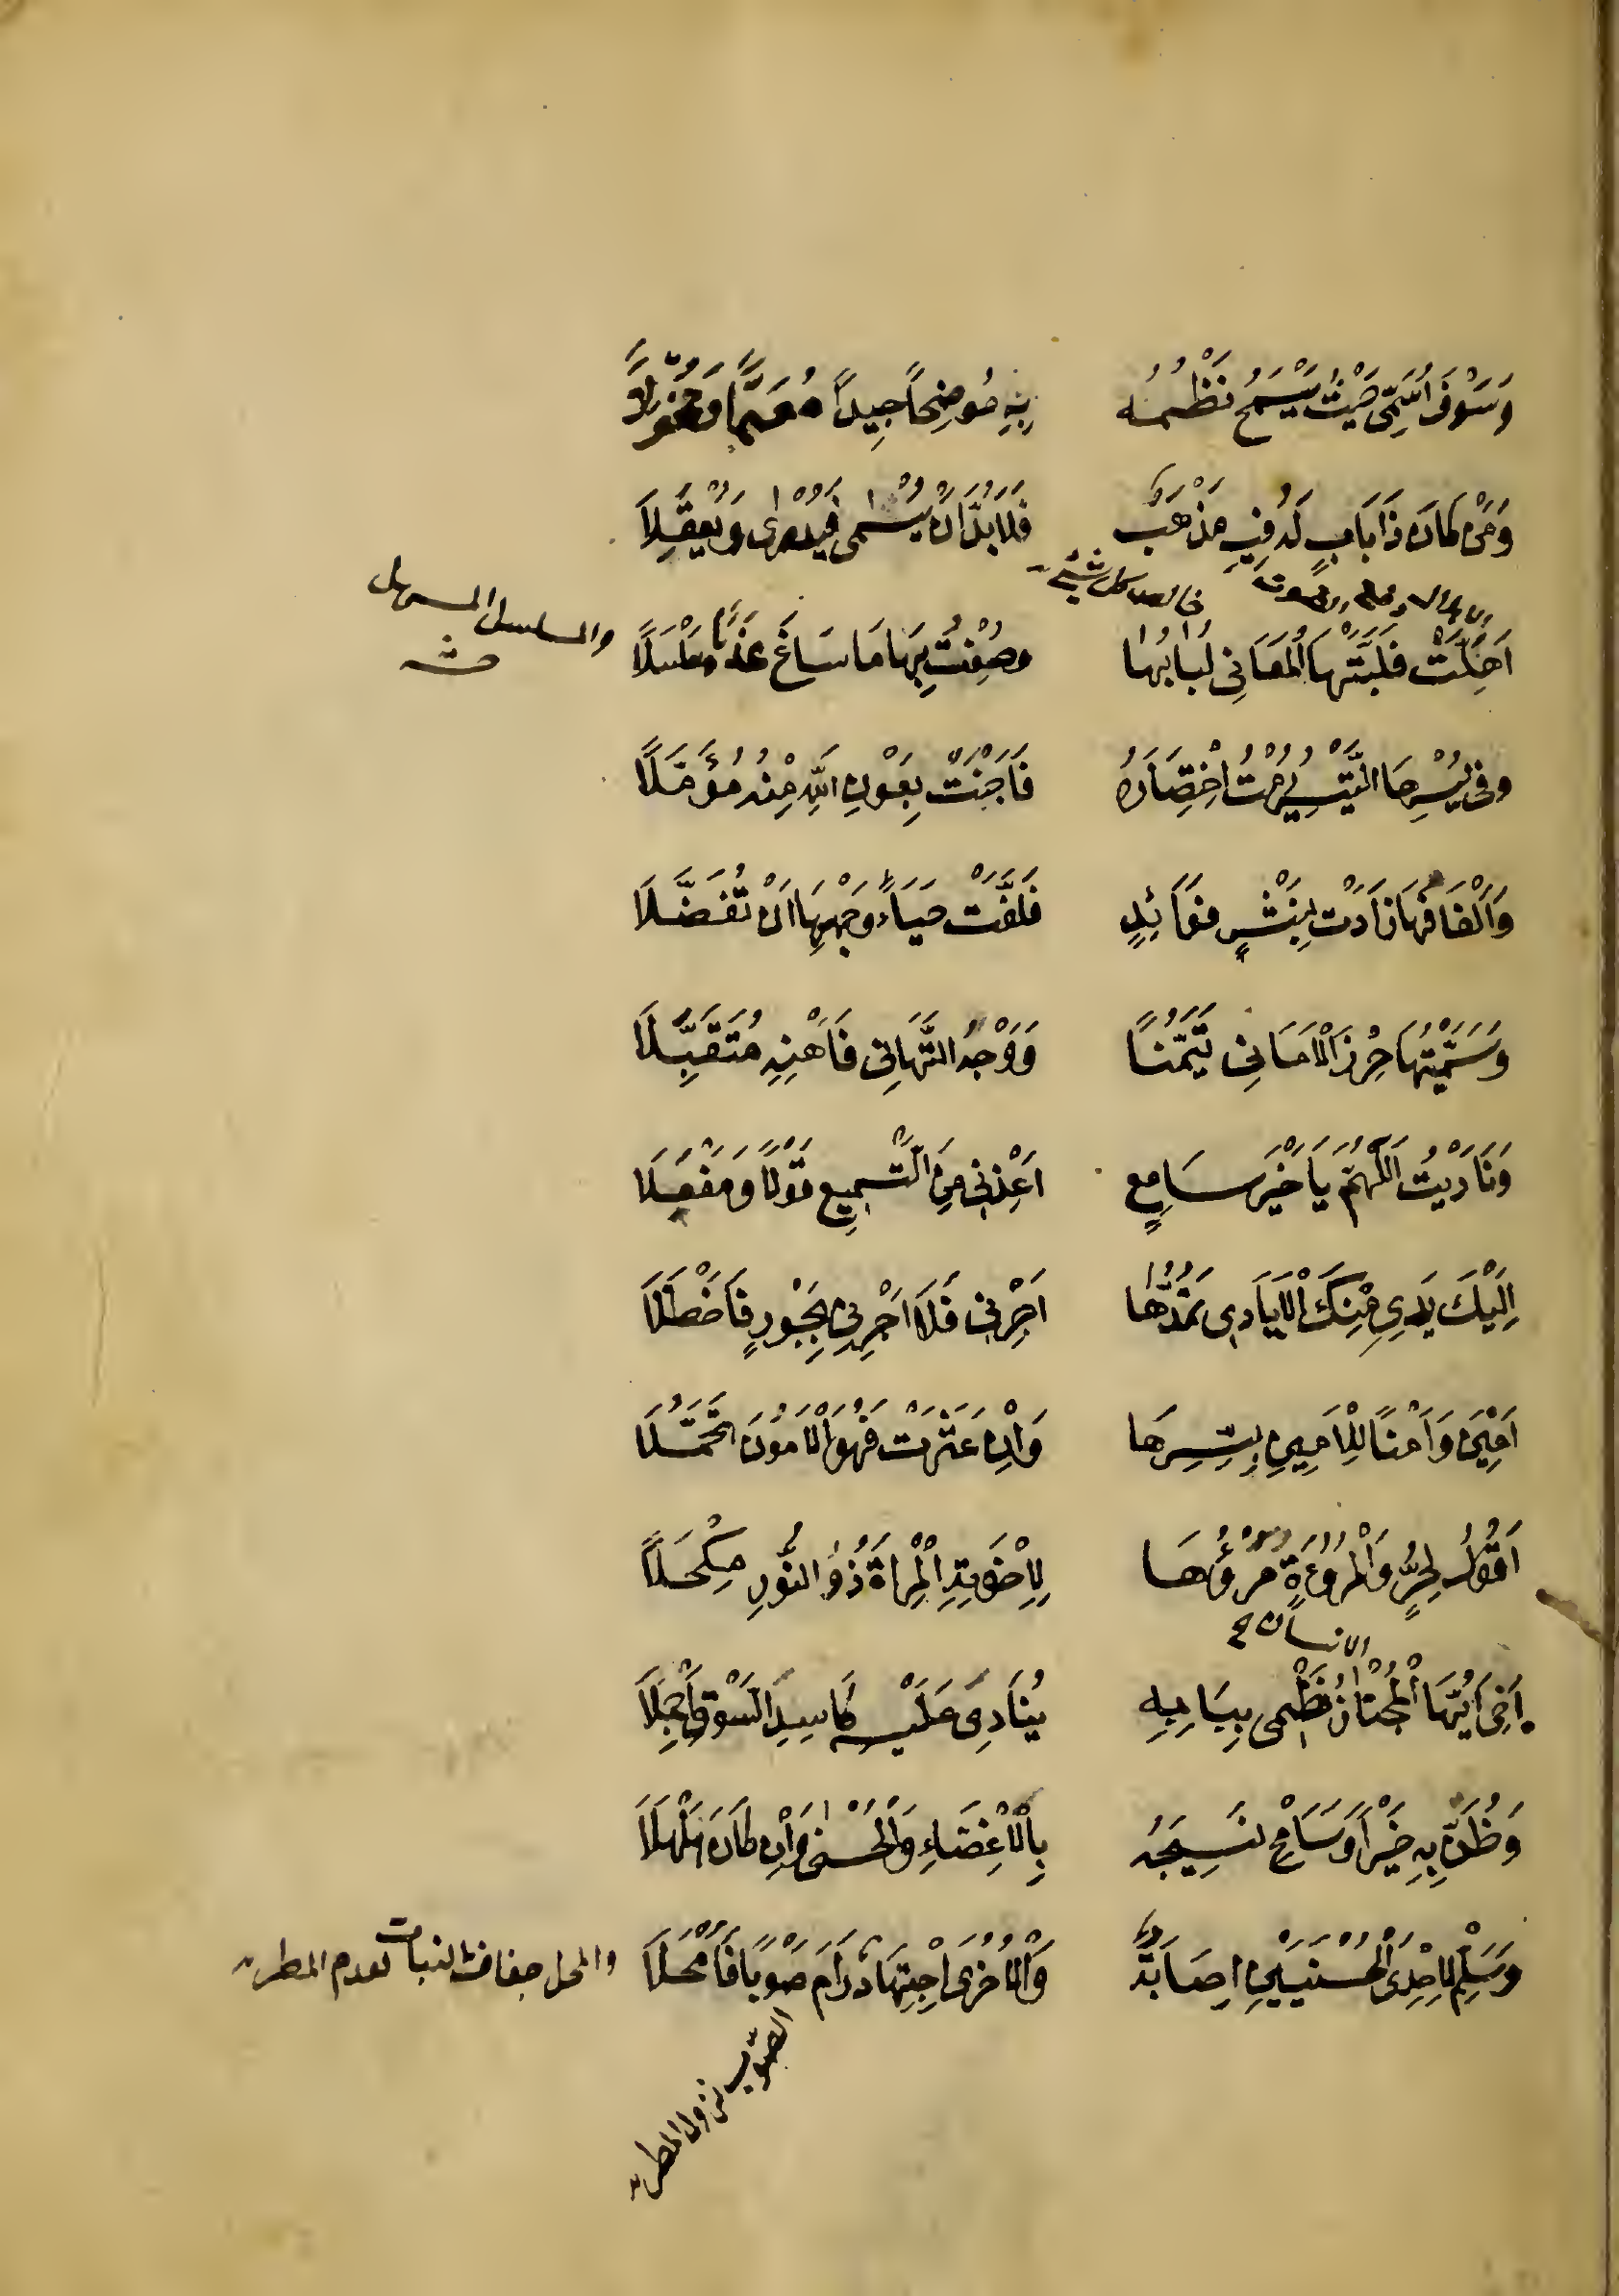 وَسَوْفَ اُسَمِّى حَيْثُ يَسْمَحُ نَظْمُهُ بِهِ مُوضِحاً جِيداً مُعَمًّا وَمُخْوَلَا
وَمَنْ كَانَ ذَا بَابٍ لَهُ فِيهِ مَذْهَبٌ فَلَا بُدَّ اَنْ يُسْمٰى فَيُدْرٰى وَيُعْقَلَا
اَهَلَّتْ فَلَبَّتْهَا الْمَعَانِى لُبَابُهَا وَصُغْتُ بِهَا مَا سَاغَ عَذْباً مُسَلْسَلَا
والسلسل السهل
وفى يُسْرِهَا التَّيْسِيرُ رُمْتُ اخْتِصَارَهُ فَاَجْنَتْ بِعَوْنِ اللّٰهِ مِنْهُ مُؤَمَّلَا
وَاَلْفَافُهَا زَادَتْ بِنَشْرِ فَوَائِدٍ فَلَفَّتْ حَيَاءً وَجْهَهَا اَنْ تُفَضَّلَا
وَسَمَّيْتُهَا حِرْزَ الْاَمَانِى تَيَمُّناً وَوَجْهَ التَّهَانِى فَاهْنِهِ مُتَقَبِّلَا
وَنَادَيْتُ اَللّٰهُمَّ يَا خَيْرَ سَامِعٍ اَعِذْنِى مِنَ التَّسْمِيعِ قَوْلاً وَمَفْعَلَا
اِلَيْكَ يَدِى مِنْكَ الْاَيَادِى تَمُدُّهَا اَجِرْنِى فَلَا اَجْرِى بِجَوْرٍ فَاَخْطَلَا
اَمِينَ وَاَمْناً لِلْاَمِينِ بِسِرِّهَا وَاِنْ عَثَرَتْ فَهُوَ الْاَمُونُ تَحَمُّلَا
اَقُولُ لِحُرٍّ وَالْمُرُوءَةُ مَرْؤُهَا لِاِخْوَتِهِ الْمِرْاٰةُ ذُو النُّورِ مِكْحَلَا
الانسان
اَخِى اَيُّهَا الْمُجْتَازُ نَظْمِى بِبَابِهِ يُنَادٰى عَلَيْهِ كَاسِدَ السُّوقِ اَجْمِلَا
وَظُنَّ بِهِ خَيْراً وَسَامِحْ نَسِيجَهُ بِالْاِغْضَاءِ وَالْحُسْنٰى وَاِنْ كَانَ هَلْهَلَا
وَسَلِّمْ لِاِحْدَى الْحُسْنَيَيْنِ اِصَابَةٌ وَالْاُخْرٰى اجْتِهَادٌ رَامَ صَوْباً فَاَمْحَلَا
والمحل جفاف النبات لعدم المطر
الصوب نزول المطر